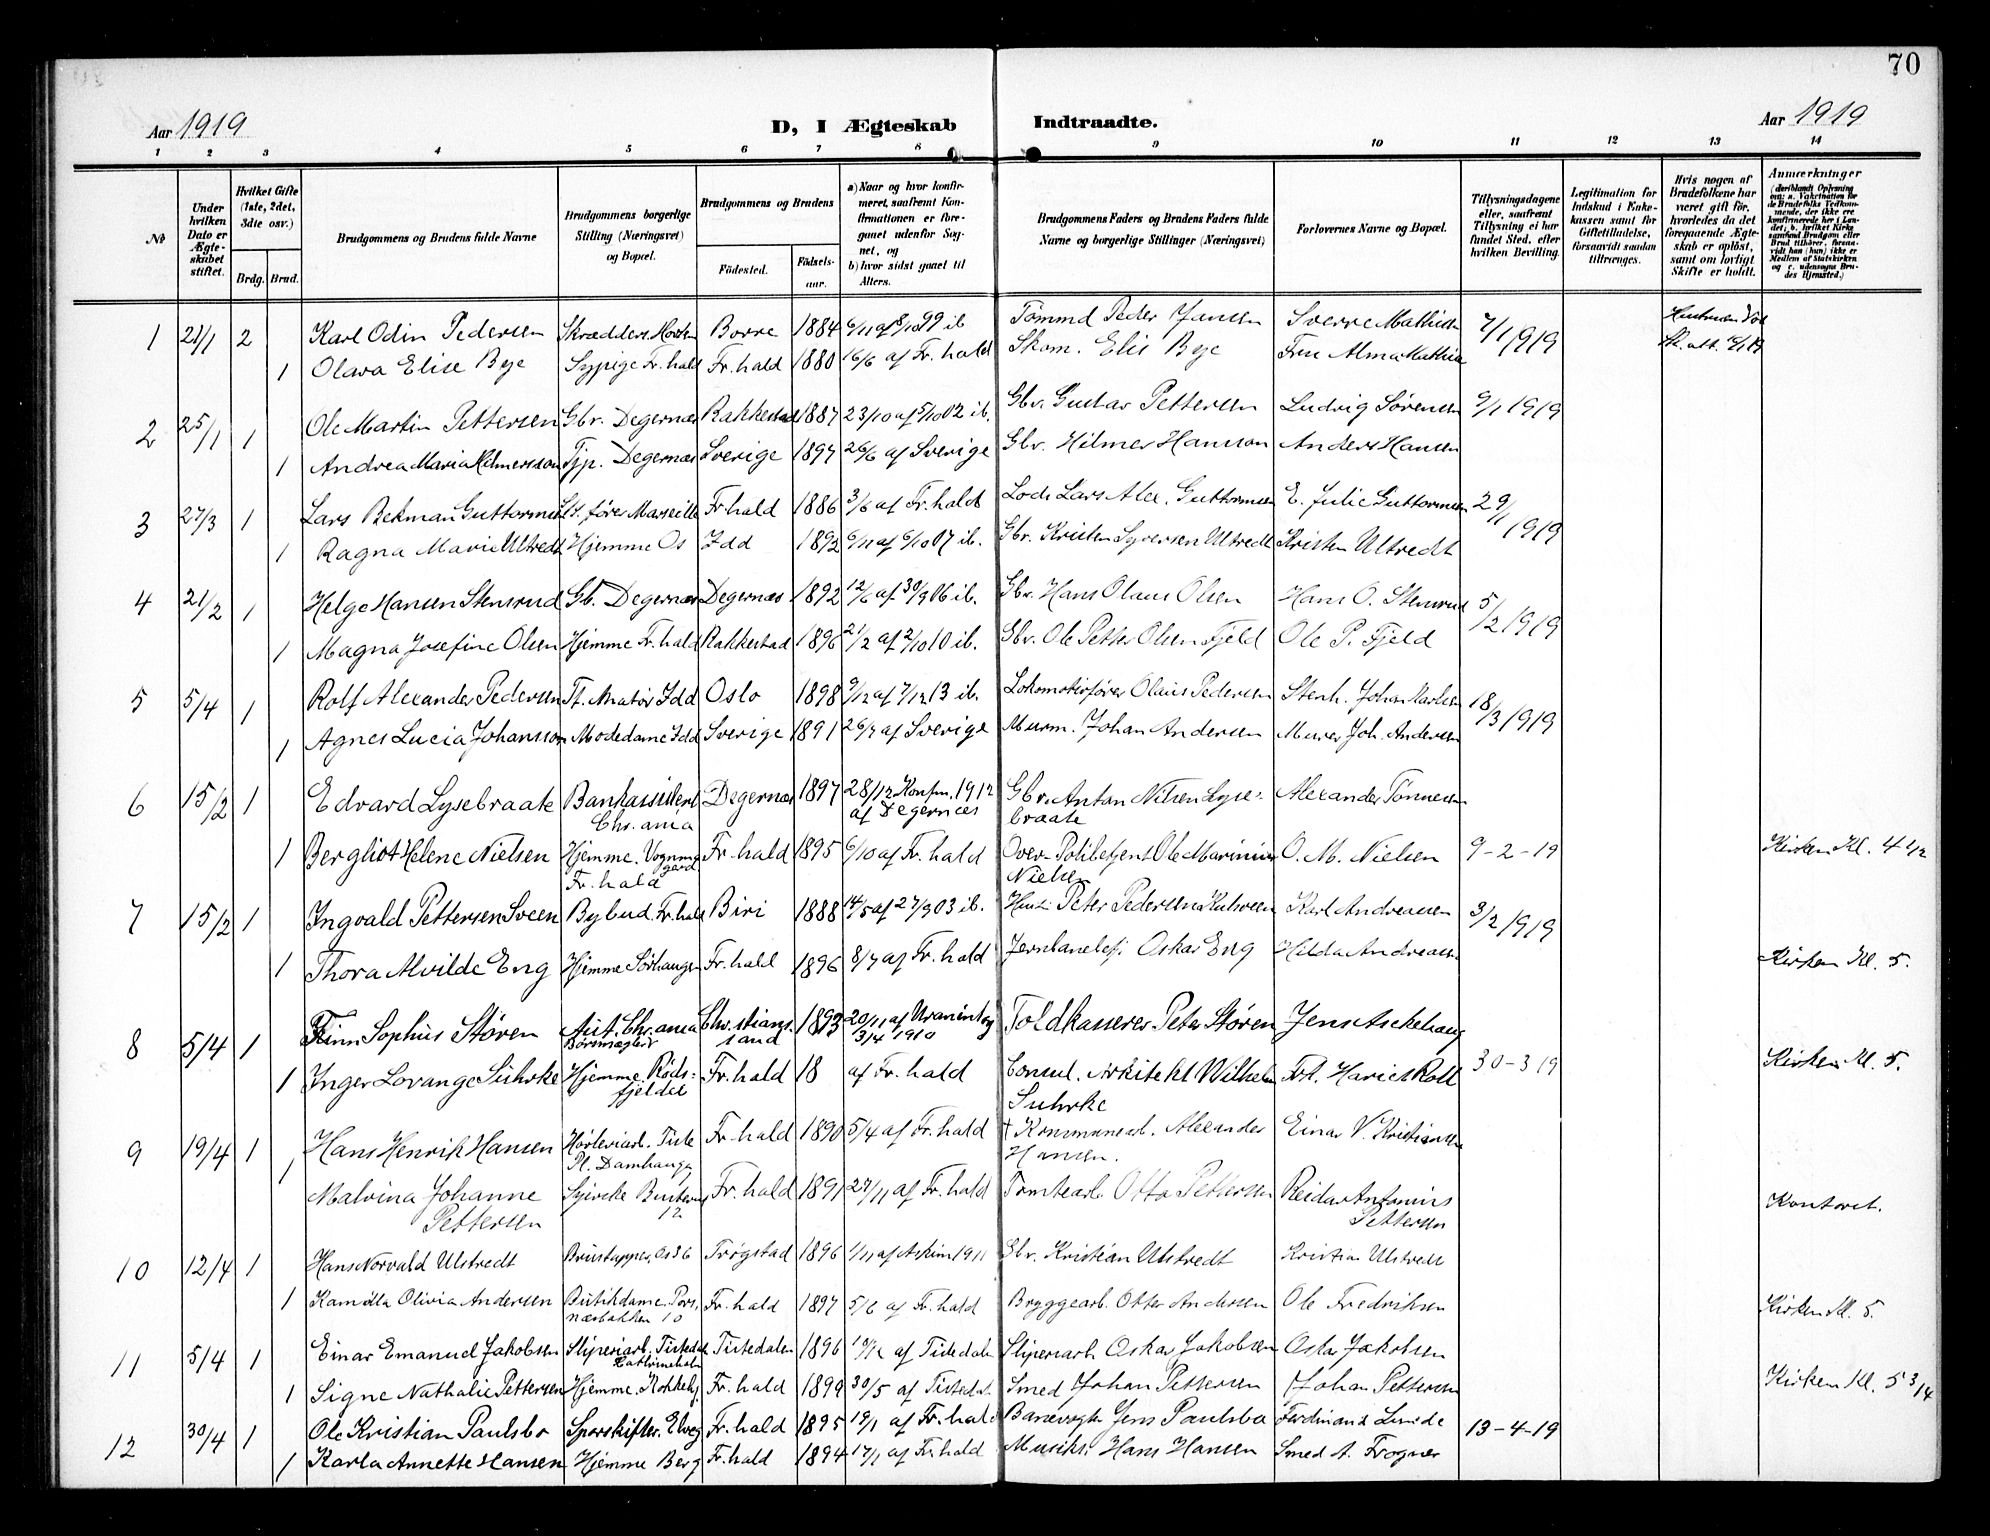 70
Aar 1919 D, I Ægteskab Indtraadte. Aar 1919
1 2 3 4 5 6 7 8 9 10 11 12 13 14
No
Under hvilken Dato er Ægte-skabet stiftet.
Hvilket Gifte (1ste, 2det, 3die osv.)
Brdg. Brud.
Brudgommens og Brudens fulde Navne
Brudgommens borgerlige Stilling (Næringsvei) og Bopæl.
Brudgommens og Brudens
Födested. Födsels-aar.
a) Naar og hvor konfir-meret, saafremt Kon-firmationen er fore-gaaet udenfor Sog-net, og
b) hvor sidst gaaet til Alters.
Brudgommens Faders og Brudens Faders fulde Navne og borgerlige Stillinger (Næringsvei)
Forlovernes Navne og Bopæl.
Tillysningsdagene eller, saafremt Tillysning ei har fundet Sted, efter hvilken Bevilling.
Legitimation for Indskud i Enke-kassen samt for Giftetilladelse, forsaavidt saadan tiltrænges.
Hvis nogen af Brudefolkene har været gift før, hvorledes da det foregaaende Ægte-skab er oplöst, samt om lovligt Skifte er holdt.
Anmærkninger
1 21/1 2 Karl Odin Pedersen Skrædders. Horten Borre 1884 6/11 af 8/10 99 ib Tömmd Peder Jansen Sverre Mathisen 7/1 1919
1 Olava Elise Bye Sypige Fr.hald Fr.hald 1880 16/6 af Fr.hald Skom. Elis Bye Fru Alma Mathis
2 25/1 1 Ole Martin Pettersen Gbr. Degernæs Rakkestad 1887 23/10 af 5/10 02 ib. Gbr. Gustav Pettersen Ludvig Sørensen 9/1 1919
1 Andrea Maria Hilmersson Tjp. Degernæs Sverige 1897 26/6 af Sverige Gbr. Hilmer Hansson Anders Hansen
3 27/3 1 Lars Bekman Guttormsen St. fører Marseille Fr.hald 1886 3/6 af Fr.hald Lods Lars Alex. Guttormsen E. Julie Guttormsen 29/1 1919
1 Ragna Marie Ulstredt Hjemme Os Idd 1892 6/11 af 6/10 07 ib. Gbr. Kristen Syversen Ultredt Kristen Ultredt
4 21/2 1 Helge Hansen Stensrud Gb. Degernæs Degernæs 1892 12/6 af 30/9 06 ib. Gbr. Hans Olaus Olsen Hans O. Stensrud 5/2 1919
1 Magna Josefine Olsen Hjemme Fr.hald Rakkestad 1896 21/2 af 2/10 10 ib. Gbr. Ole Petter Olsen Fjeld Ole P. Fjeld
5 5/4 1 Rolf Alexander Pedersen Idd Oslo 1898 9/12 af 7/12 13 ib. Lokomotivfører Olaus Pedersen Stenh. Johan Karlsen 18/3 1919
1 Agnes Lucia Johansson Modedame Idd Sverige 1891 26/7 af Sverige Murm. Johan Andersen Murer Joh. Andersen
6 15/2 1 Edvard Lysebraate Bankassistent Chr.ania Degernæs 1897 28/12 Konfm. 1912 af Degernæs Gbr. Anton Nilsen Lyse-braate Alexander Tønnesen
1 Bergliot Helene Nielsen Hjemme. Vognmg. gaard Fr.hald Fr.hald 1895 6/10 af Fr.hald Over-Politibetjent Ole Marinius Nielsen O. M. Nielsen 9-2-19 Kirken Kl. 4 1/2
7 15/2 1 Ingvald Pettersen Sveen Bybud. Fr.hald Biri 1888 14/5 af 27/9 03 ib. Peter Pedersen Karl Andreasen 3/2 1919
1 Thora Alvilde Eng Hjemme Sørhaugen Fr.hald 1896 8/7 af Fr.hald Jernbanebetj Oskar Eng Hilda Andreasen Kirken Kl. 5.
8 5/4 1 Finn Sophus Støren Aut. Chr.ania Børsmægler Chr.stians-sand 1893 20/11 af Uranienborg 3/4 1910 Toldkasserer Peter Støren Jens Aschehoug
1 Inger Lovange Suhrke Hjemme. Røds-fjeldet Fr.hald 18 af Fr.hald Consul. Arkitekt Wilhelm Suhrke Frk. Hariet Roll 30-3 19 Kirken Kl. 5.
9 19/4 1 Hans Henrik Hansen Tiste Pl. Damhaugen Fr.hald 1890 5/4 af Fr.hald † Kommunearb. Alexander Hansen. Einar V. Kristiansen
1 Malvina Johanne Pettersen 12 Fr.hald 1891 27/11 af Fr.hald Tomtearb Otto Pettersen Reidar Antonius Pettersen Kontoret.
10 12/4 1 Hans Norvald Ulstredt Brustapper, Os 36 Trøgstad 1896 1/11 af Askim 1911 Gbr. Kristian Ulstredt Kristian Ulstredt
1 Kamilla Olivia Andersen Butikdame. Pors-næsbakken 10 Fr.hald 1897 5/6 af Fr.hald Bryggearb. Otter Andersen Ole Fredriksen Kirken Kl. 5.
11 5/4 1 Einar Emanuel Jakobsen Sliperiarb. Tistedal Tistedalen 1896 af Tistedalen Sliperiarb Oskar Jakobsen Oskar Jakobsen
1 Signe Nathalie Pettersen Hjemme. Fr.hald 1899 30/5 af Tistedal. Smed Johan Pettersen Johan Pettersen Kirken Kl. 5 3/4
12 30/4 1 Ole Kristian Paulsbo Sporskifter. Elveg Fr.hald 1895 19/1 af Fr.hald Banevogter Jens Paulsbo Ferdinand Lunde 13-4-19
1 Karla Annette Hansen Hjemme Berg Fr.hald 1894 17/1 af Fr.hald Musiks. Hans Hansen Smed A. Frogner